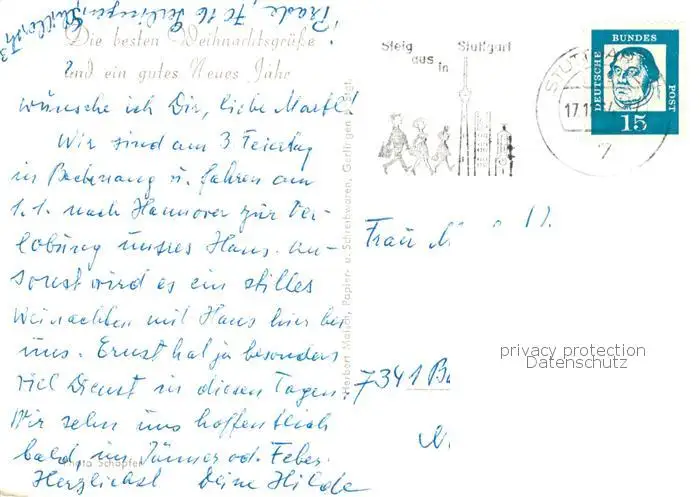 Die besten Weihnachtsgrüße
und ein gutes Neues Jahr
wünsche ich Dir, liebe Martl!
Wir sind am 3 Feiertag
in Backnang u. fahren am
1.1. nach Hannover zur Ver-
lobung unsres Hans. an-
sonst wird es ein stilles
Weinachten mit Hans hier bei
uns. Ernst hat ja besonders
viel Dienst in diesen Tagen.
Wir sehn uns hoffentlich
bald im Jänner od. Feber.
Herzlichst Deine Hilde
Photo Schöpfer
7016 Gerlingen
Herbert Maisch, Papier- u. Schreibwaren, Gerlingen
Steig
aus
in
Stuttgart
STUTTGART
17.1
7
DEUTSCHE
BUNDES
POST
15
Frau M
7341 Ba
privacy protection
Datenschutz